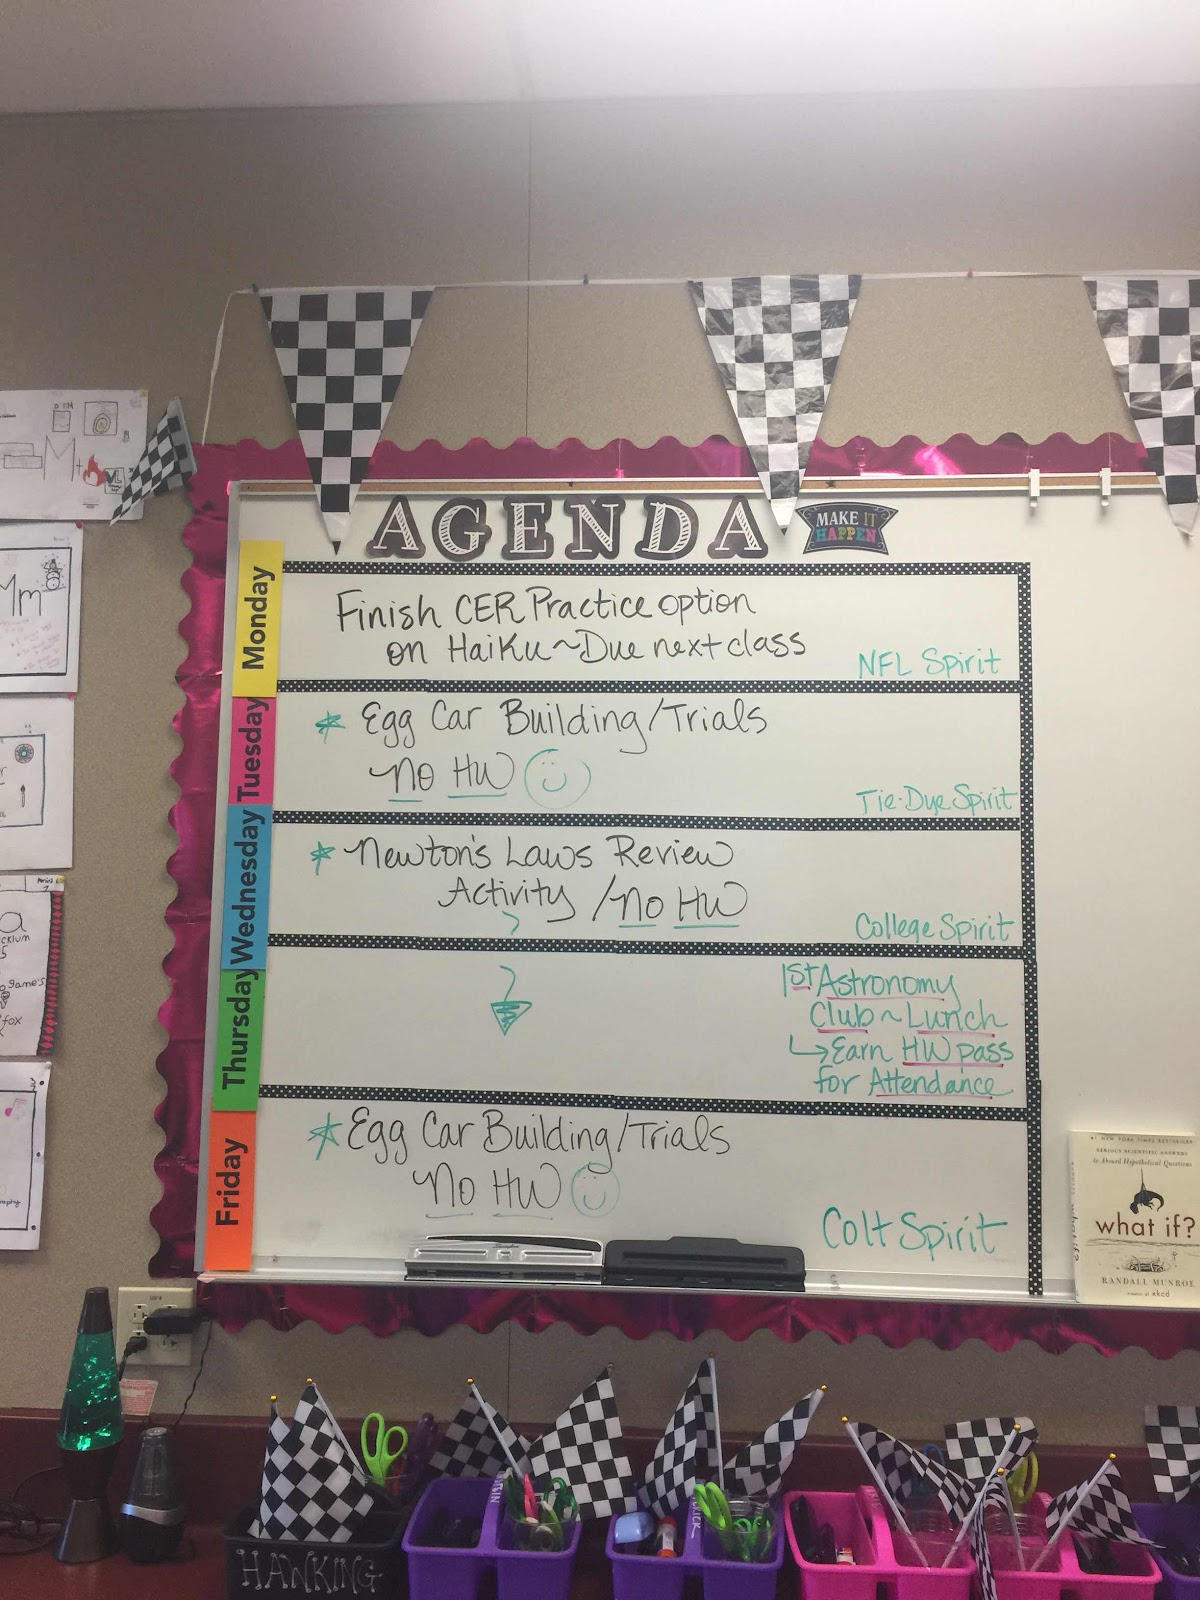 AGENDA
MAKE IT
HAPPEN
Monday
Finish CER Practice option
on Haiku~Due next class
NFL Spirit
Tuesday
* Egg Car Building/Trials
No HW
Tie-Dye Spirit
Wednesday
* Newton's Laws Review
Activity / No HW
College Spirit
Thursday
1st Astronomy
Club ~ Lunch
↳ Earn HW pass
for Attendance
Friday
* Egg Car Building/Trials
No HW
Colt Spirit
#1 NEW YORK TIMES BESTSELLER
SERIOUS SCIENTIFIC ANSWERS
to Absurd Hypothetical Questions
what if?
RANDALL MUNROE
xkcd
Mm
game's
fox
HAWKING